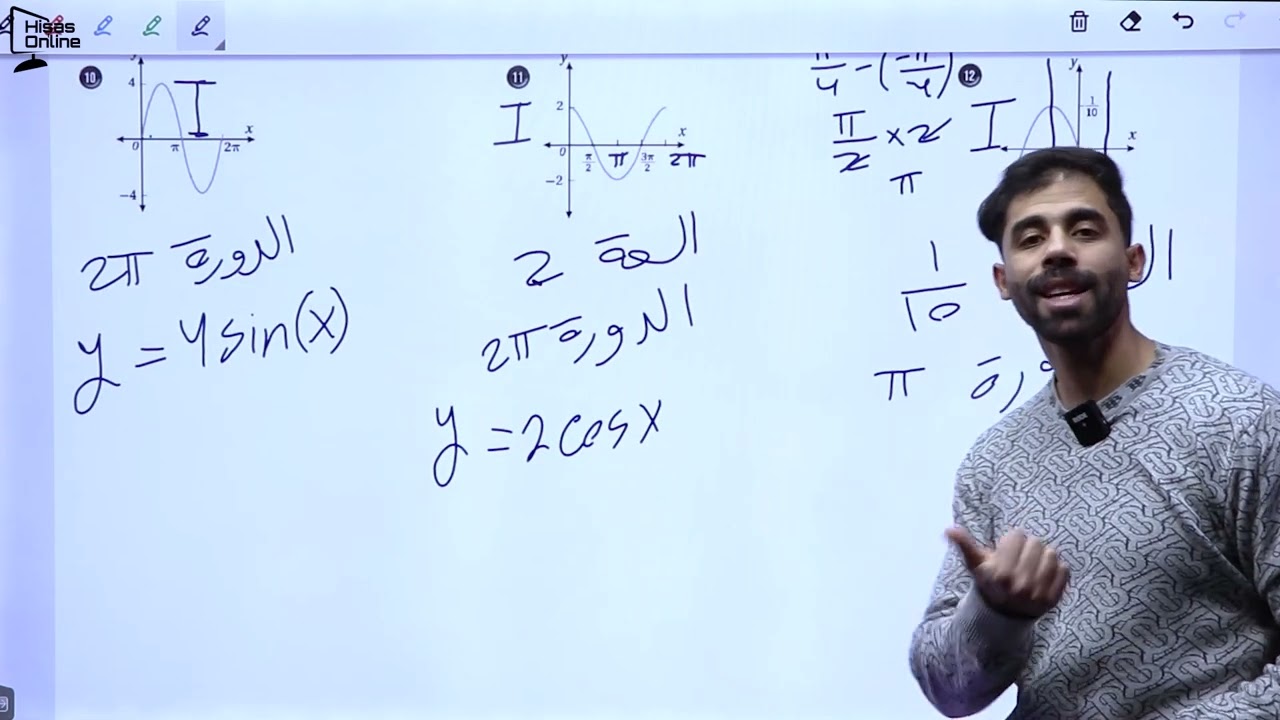 Hisas
Online
10
y
4
x
0
π
2π
-4
الدورة 2π
y = 4 sin(x)
11
y
2
x
0
π/2
π
3π/2
2π
-2
السعة 2
الدورة 2π
y = 2 cos x
π/4 - (-π/4)
π/2 × 2
π
12
y
1/10
x
1/10
π